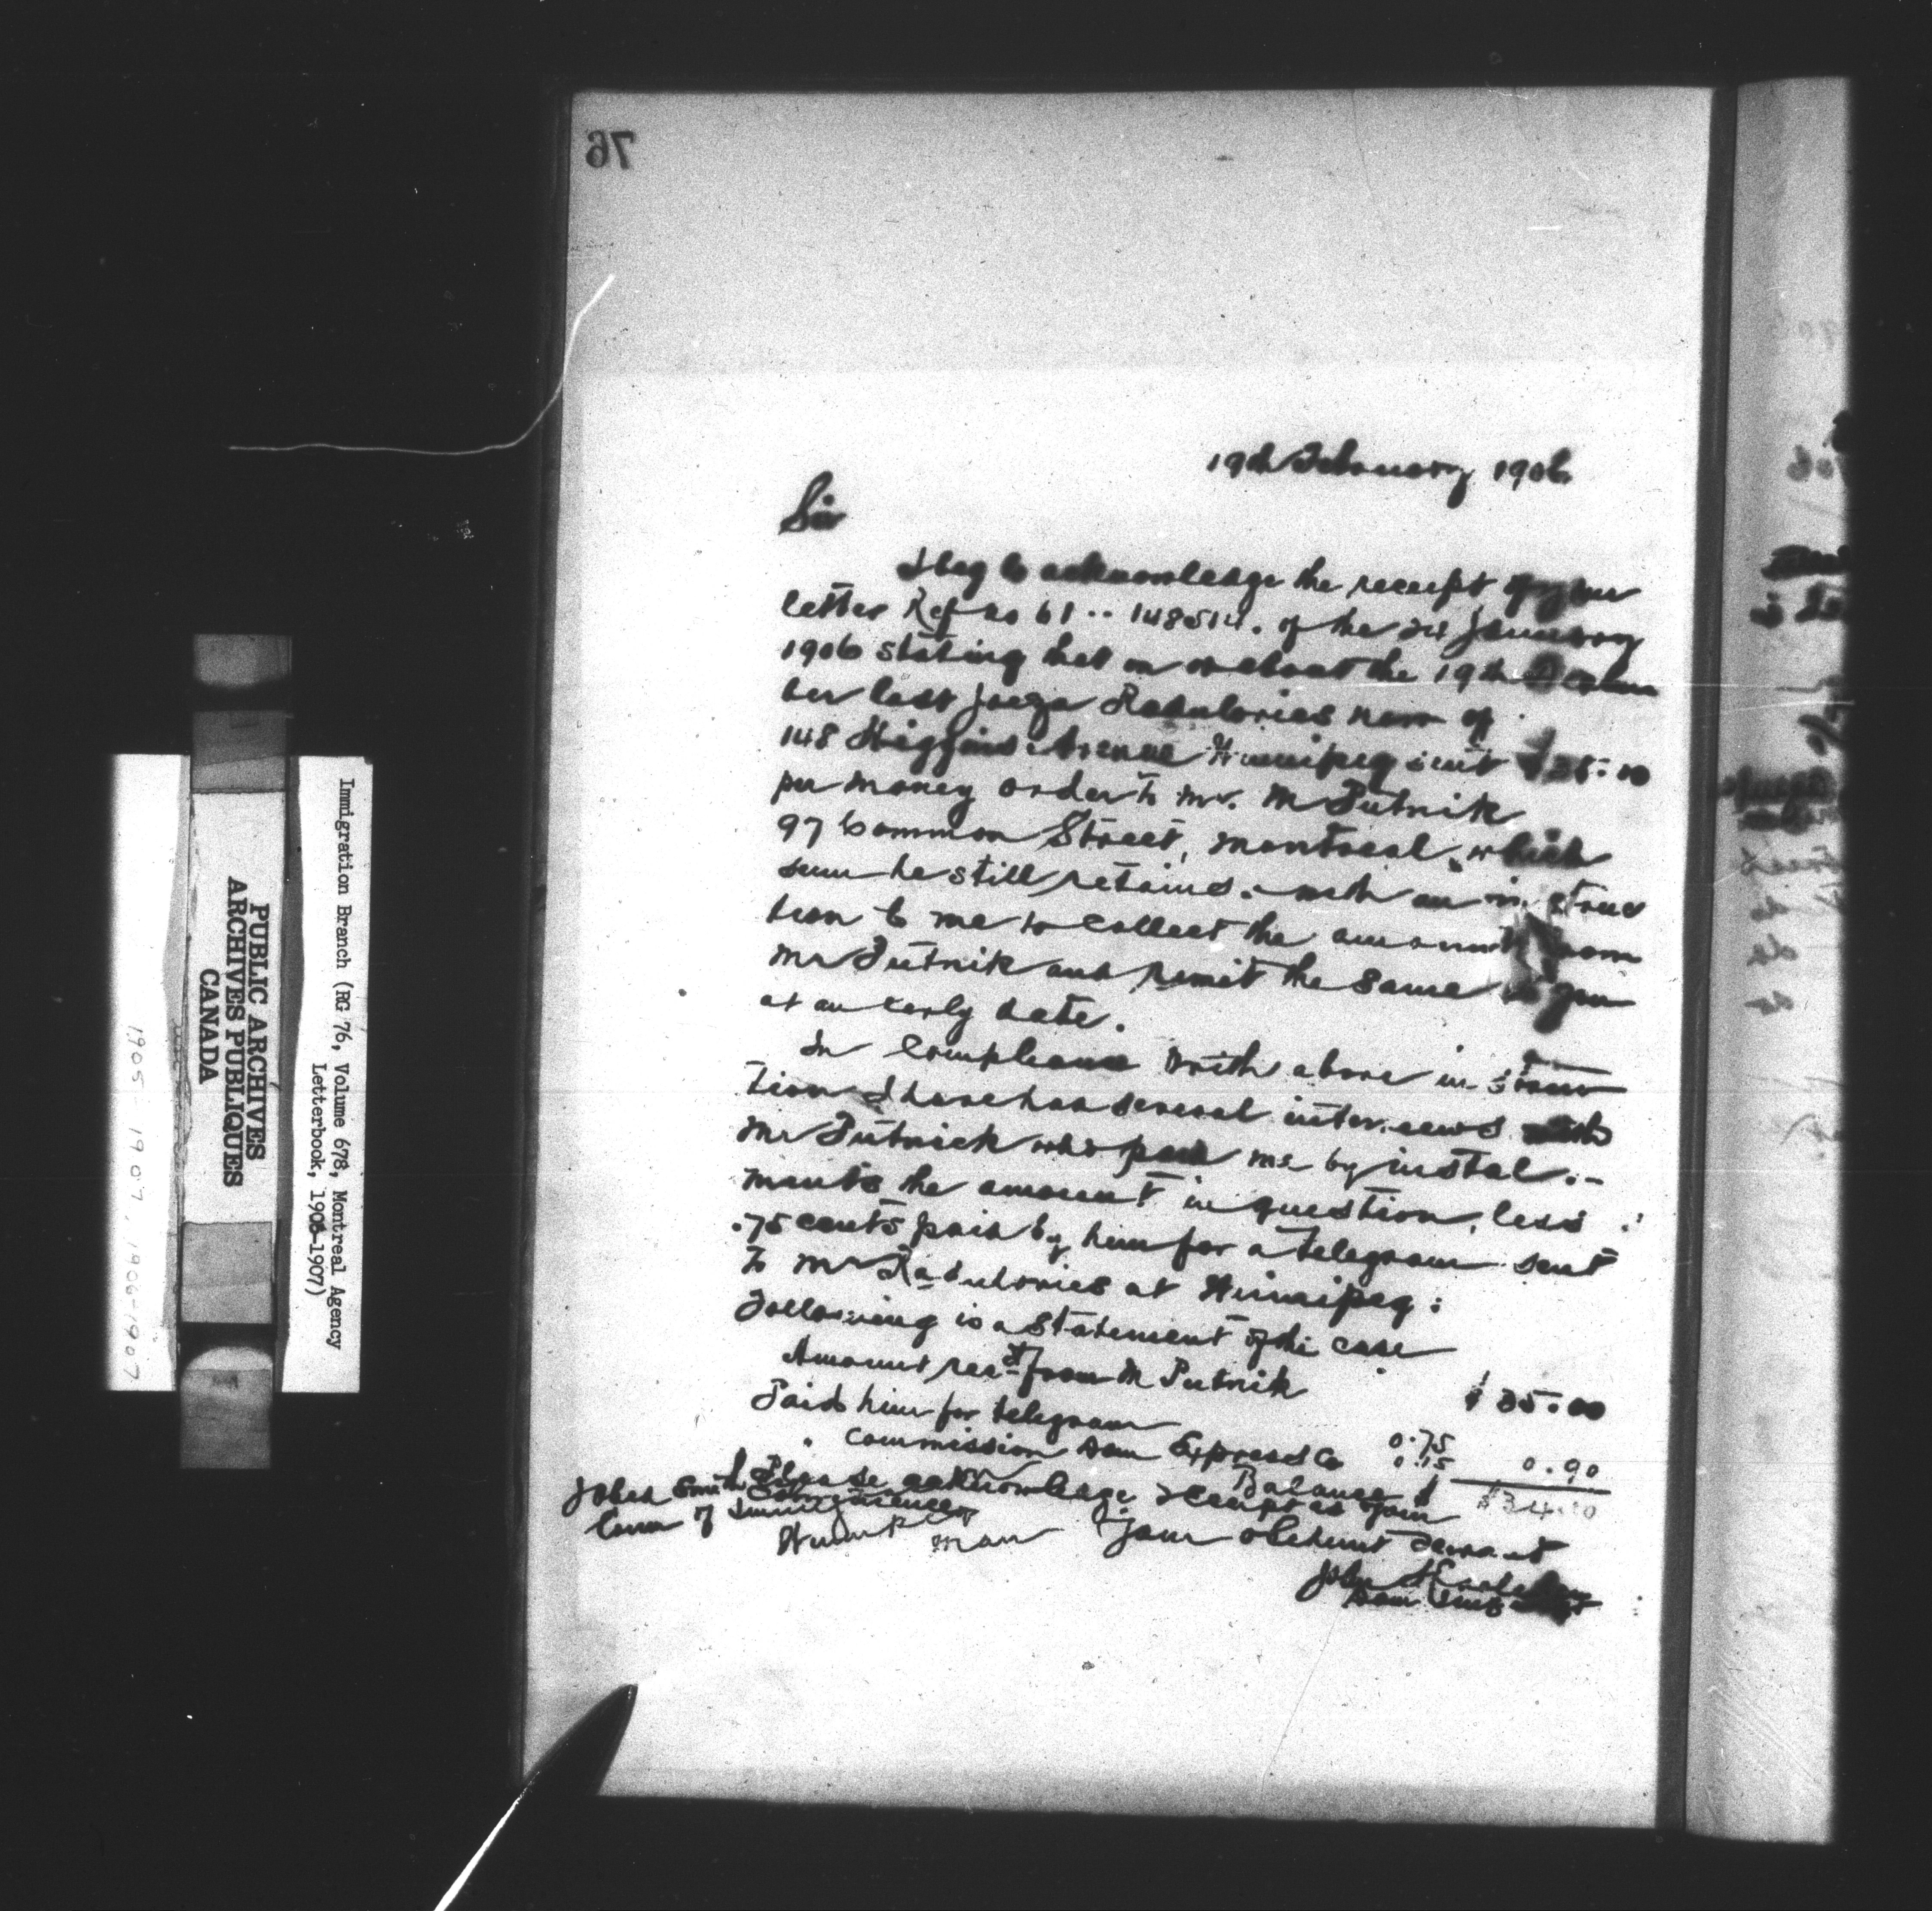 76
19th February 1906
Sir
I beg to acknowledge the receipt of your
letter Ref no 61 .. 148514. of the 24 January
1906 stating that on or about the 19th Decem
ber last Radulovies now of
148 Higgins Avenue Winnipeg sent $35.00
per money order to Mr. M Putnik
97 Common Street, Montreal, which
sum he still retains. with an instruc
tion to me to collect the amount from
Mr Putnik and remit the same to you
at an early date.
In compliance with above instruc
tion I have had several interviews with
Mr Putnick who paid me by instal.-
ments the amount in question, less
.75 cents paid by him for a telegram sent
to Mr Radulovies at Winnipeg:
Following is a statement of the case
Amount recd from M Putnik $35.00
Paid him for telegram 0.75
" commission Dom Express Co 0.15 0.90
Balance $ $34.10
Please acknowledge receipt as
Your obedient servant
John
Dom
Smith
Com of Immigration
Winnipeg
Man
Immigration Branch (RG 76, Volume 678, Montreal Agency
Letterbook, 1905-1907)
PUBLIC ARCHIVES
ARCHIVES PUBLIQUES
CANADA
1905-1907, 1906-1907